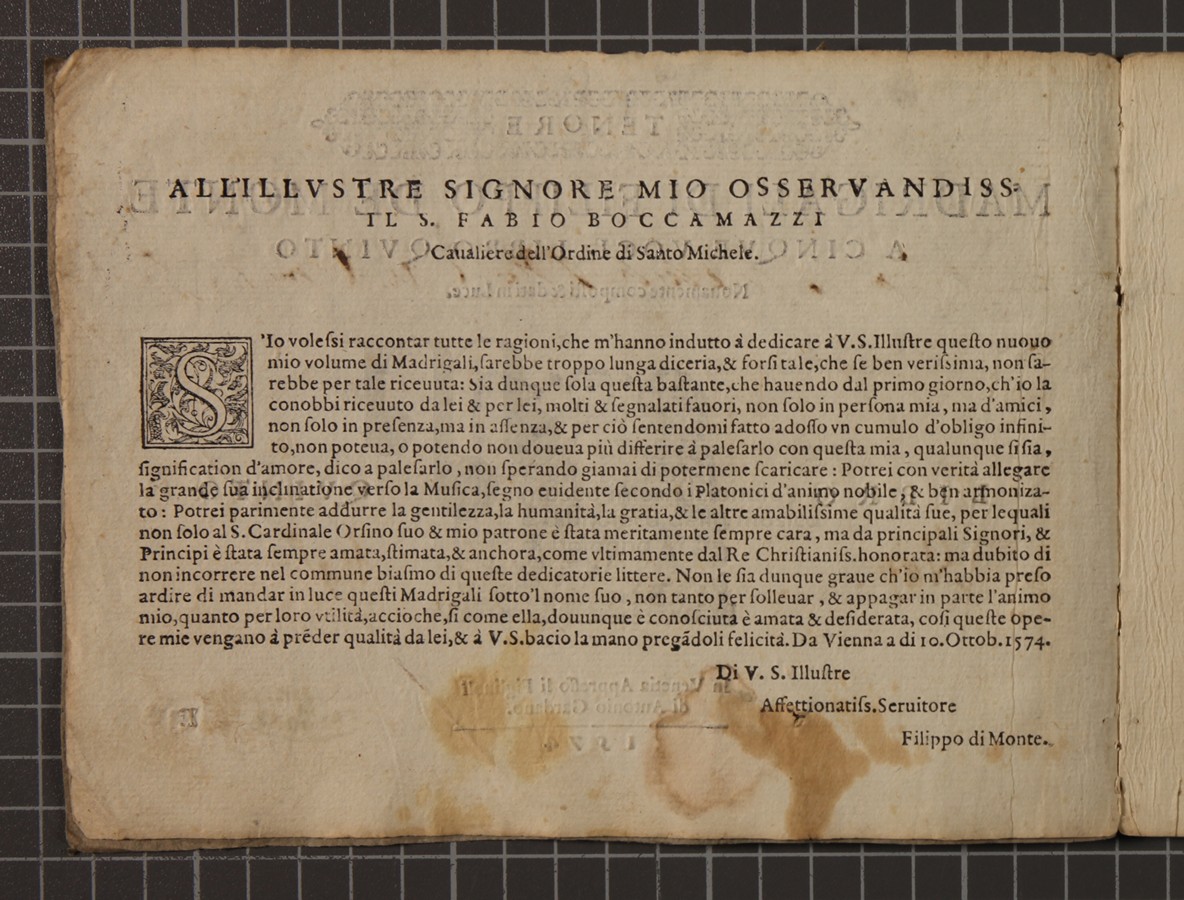 ALL'ILLVSTRE SIGNORE MIO OSSERVANDISS.
IL S. FABIO BOCCAMAZZI
Caualiere dell'Ordine di Santo Michele.
S'Io volessi raccontar tutte le ragioni,che m'hanno indutto à dedicare à V.S.Illustre questo nuouo
mio volume di Madrigali,sarebbe troppo lunga diceria,& forsi tale,che se ben verissima, non sa-
rebbe per tale riceuuta: Sia dunque sola questa bastante,che hauendo dal primo giorno,ch'io la
conobbi riceuuto da lei & per lei, molti & segnalati fauori, non solo in persona mia, ma d'amici,
non solo in presenza,ma in assenza,& per ciò sentendomi fatto adosso vn cumulo d'obligo infini-
to,non poteua, o potendo non doueua più differire à palesarlo con questa mia, qualunque si sia,
signification d'amore, dico a palesarlo, non sperando giamai di potermene scaricare : Potrei con verità allegare
la grande sua inclinatione verso la Musica,segno euidente secondo i Platonici d'animo nobile, & ben armoniza-
to : Potrei parimente addurre la gentilezza,la humanità,la gratia,& le altre amabilissime qualità sue, per lequali
non solo al S. Cardinale Orsino suo & mio patrone è stata meritamente sempre cara, ma da principali Signori, &
Principi è stata sempre amata,stimata,& anchora,come vltimamente dal Re Christianiss.honorata: ma dubito di
non incorrere nel commune biasmo di queste dedicatorie littere. Non le sia dunque graue ch'io m'habbia preso
ardire di mandar in luce questi Madrigali sotto'l nome suo, non tanto per solleuar, & appagar in parte l'animo
mio,quanto per loro vtilità,accioche,si come ella,douunque è conosciuta è amata & desiderata, cosi queste ope-
re mie vengano à prẽder qualità da lei,& à V.S.bacio la mano pregãdoli felicità. Da Vienna a di 10.Ottob.1574.
Di V. S. Illustre
Affettionatiss.Seruitore
Filippo di Monte.
TENORE
MADRIGALI
A CINQVE
QVINTO
Nouamente composti & dati in Luce.
In Venetia Appresso li Figliuoli
di Antonio Gardano.
1574